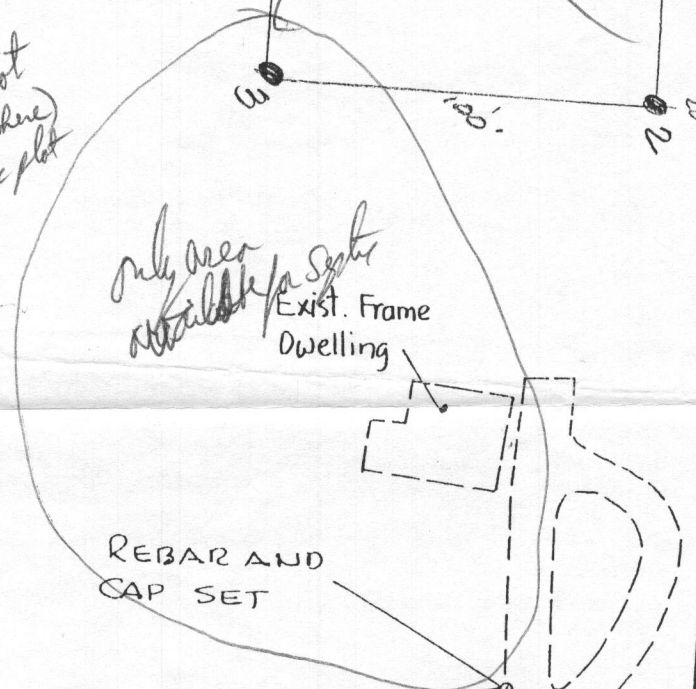 ot
here)
plot
3
100'
2
only area
available for septic
Exist. Frame
Dwelling
REBAR AND
CAP SET